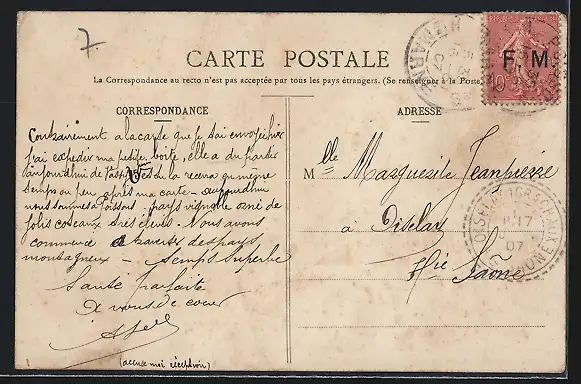 7
CARTE POSTALE
La Correspondance au recto n'est pas acceptée par tous les pays étrangers. (Se renseigner à la Poste)
REPUBLIQUE FRANÇAISE
F. M.
10
CORRESPONDANCE
ADRESSE
Contrairement à la carte que je t'ai envoyé hier
j'ai expédié ma petite boîte, elle a du partir
aujourd'hui de
temps ou peu après ma carte - aujourd'hui
nous sommes à Poissons - pays vignoble orné de
jolis coteaux très élevés. Nous avons
commencé à traverser des pays
montagneux - Temps superbe
Santé parfaite
A vous de cœur
(accuse moi réception)
Mlle Marguerite Jeanpierre
à Oiselay
Hte Saône
17
07